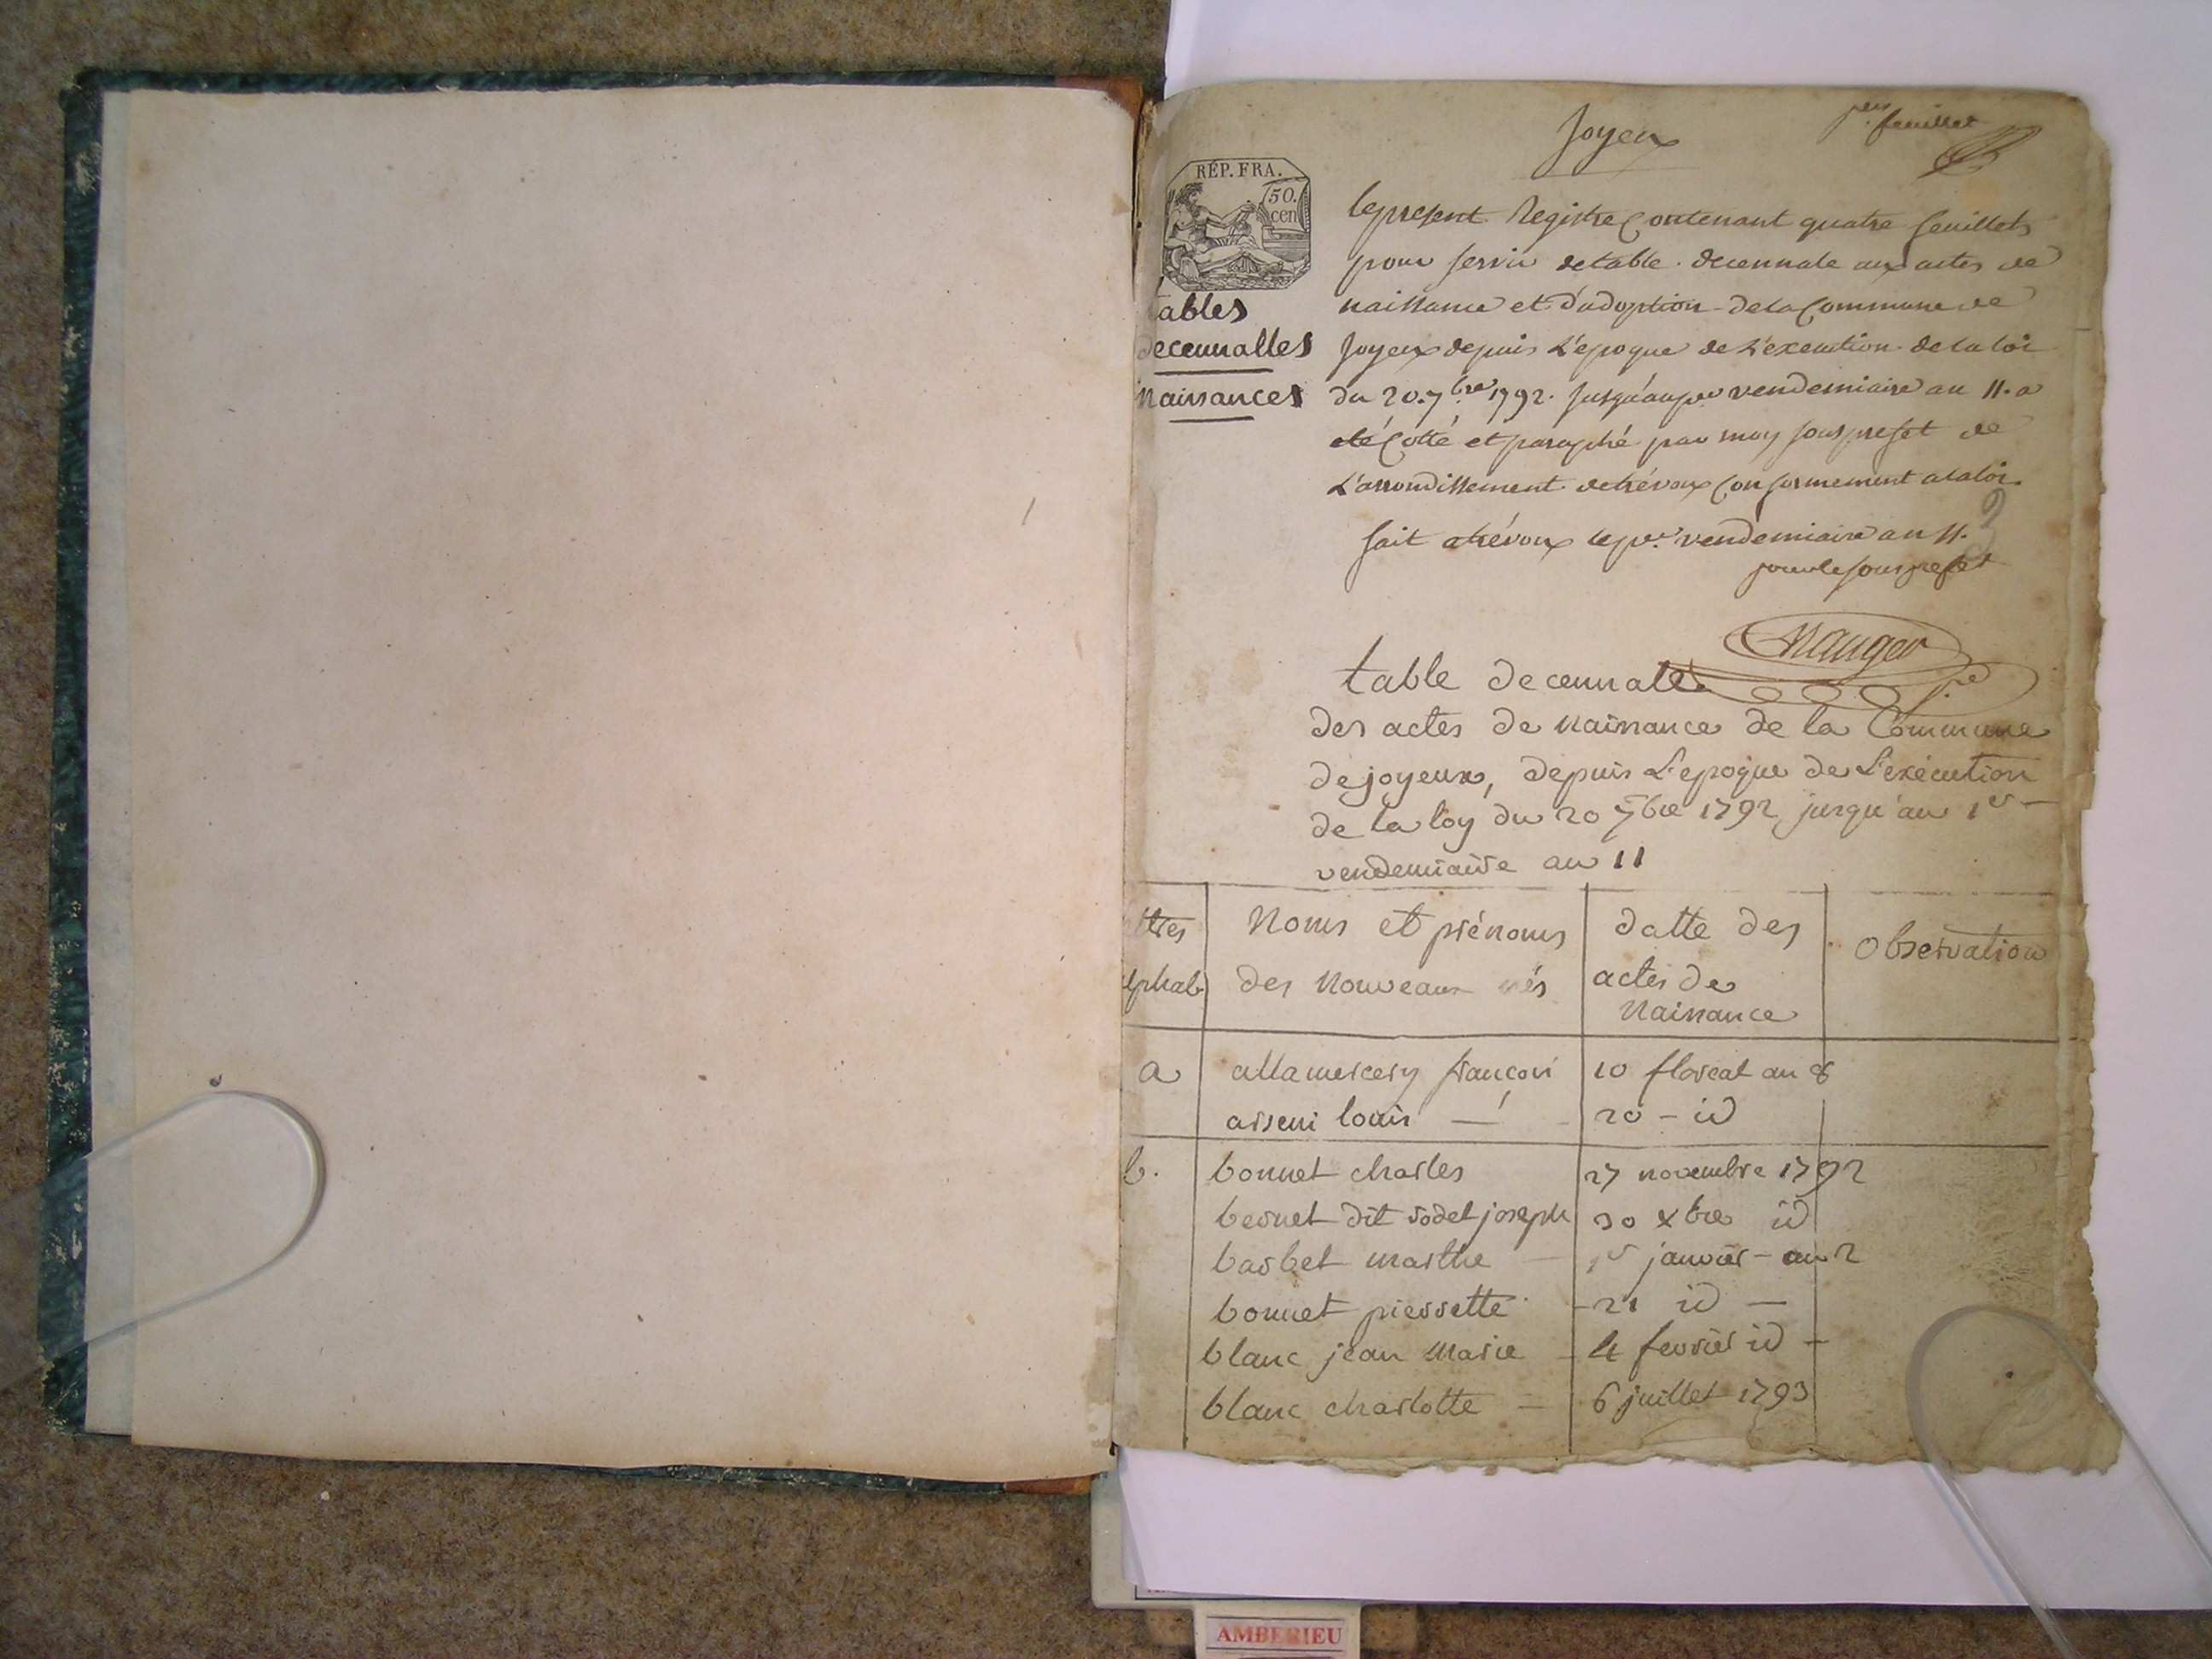 Joyeux
1er feuillet
RÉP. FRA.
50.
cen
tables
decennalles
naissances
le present Registre Contenant quatre feuillets
pour servir de table decennale aux actes de
naissance et d'adoption de la Commune de
Joyeux depuis L'epoque de L'execution de la loi
du 20. 7bre 1792. jusqu'au per vendemiaire an 11. a
eté Cotté et paraphé par moy sous prefet de
L'arrondissement de trévoux Conformement a la loi.
fait a trévoux le per vendemiaire an 11.
pour le sous prefet
table decennale
des actes de naissance de la Commune
de joyeux, depuis L'epoque de L'exécution
de la loy du 20 7bre 1792 jusqu'au 1er
vendemiaire an 11
ttres
lphab.
Noms et prénoms
des nouveaux nés
datte des
actes de
naissance
Observation
a allamercery francois 10 floreal an 8
arseni louis — 20 - id
b. bonnet charles 27 novembre 1792
bernet dit rodet joseph 30 xbre id
barbet marthe — 1er janvier - an 2
bonnet pierrette - 21 id —
blanc jean marie - 4 fevrier id -
blanc charlotte - 6 juillet 1793
AMBERIEU